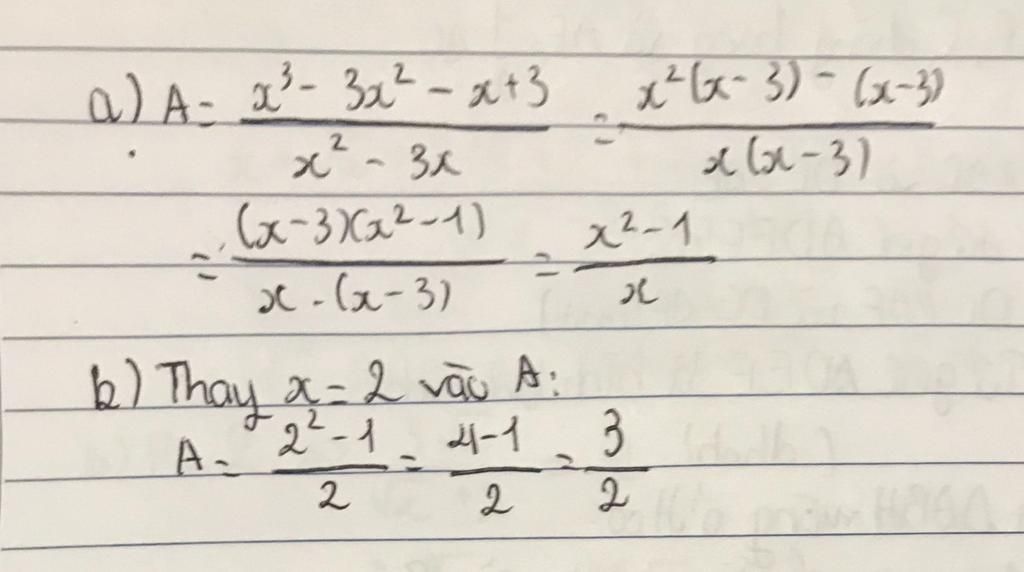 a) A = \frac{x^3 - 3x^2 - x + 3}{x^2 - 3x} = \frac{x^2(x - 3) - (x - 3)}{x(x - 3)}
= \frac{(x - 3)(x^2 - 1)}{x \cdot (x - 3)} = \frac{x^2 - 1}{x}
b) Thay x = 2 vào A:
A = \frac{2^2 - 1}{2} = \frac{4 - 1}{2} = \frac{3}{2}